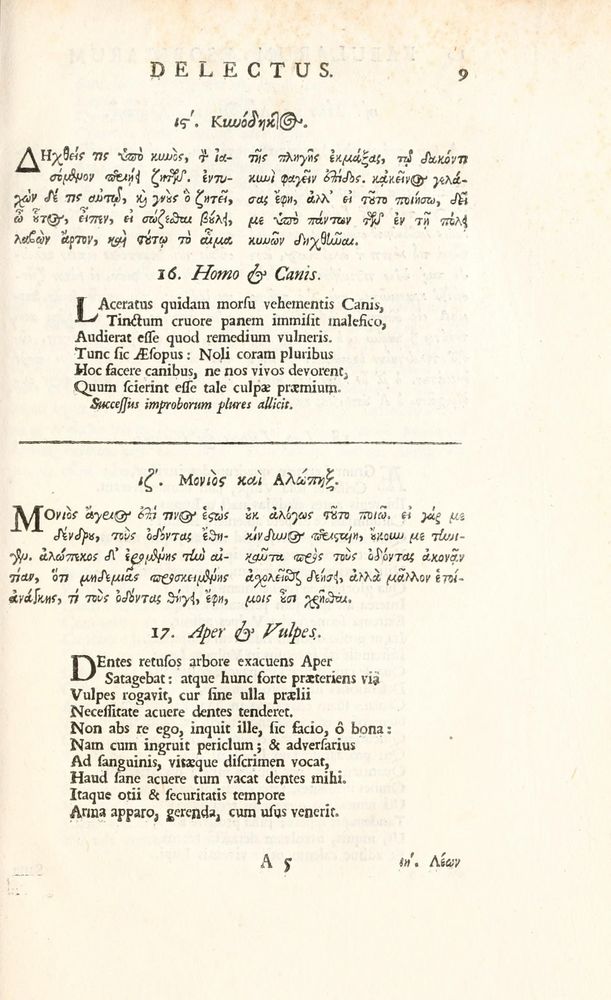 DELECTUS. 9
ις'. Κυνόδηκτος.
ΔΗχθείς τις ὑπὸ κυνὸς, τὸν ἰα-
σόμενον περιῄει ζητῶν. ἐντυ-
χὼν δέ τις αὐτῷ, καὶ γνοὺς ὃ ζητεῖ,
ὦ οὗτος, εἶπεν, εἰ σώζεσθαι βούλει,
λαβὼν ἄρτον, καὶ τούτῳ τὸ αἷμα
τῆς πληγῆς ἐκμάξας, τῷ δακόντι
κυνὶ φαγεῖν ἐπίδος. κακεῖνος γελά-
σας ἔφη, ἀλλ' εἰ τοῦτο ποιήσω, δεῖ
με ὑπὸ πάντων τῶν ἐν τῇ πόλει
κυνῶν δηχθῆναι.
16. Homo & Canis.
LAceratus quidam morsu vehementis Canis,
Tinctum cruore panem immisit malefico,
Audierat esse quod remedium vulneris.
Tunc sic Æsopus: Noli coram pluribus
Hoc facere canibus, ne nos vivos devorent,
Quum scierint esse tale culpæ præmium.
Successus improborum plures allicit.
ιζ'. Μονιὸς καὶ Αλώπηξ.
ΜΟνιὸς ἄγριος ἐπί τινος ἑστὼς
δένδρου, τοὺς ὀδόντας ἔθη-
γεν. ἀλώπεκος δ' ἐρομένης τὴν αἰ-
τίαν, ὅτι μηδεμιᾶς προκειμένης
ἀνάγκης, τί τοὺς ὀδόντας θήγει, ἔφη,
οὐκ ἀλόγως τοῦτο ποιῶ. εἰ γάρ με
κίνδυνος περισταίη, οὐκοῦν με τηνι-
καῦτα πρὸς τοὺς ὀδόντας ἀκονᾷν
ἀσχολεῖσθαι δεήσει, ἀλλὰ μᾶλλον ἑτοί-
μοις οὖσι χρῆσθαι.
17. Aper & Vulpes.
DEntes retusos arbore exacuens Aper
Satagebat: atque hunc forte præteriens viâ
Vulpes rogavit, cur sine ulla prælii
Necessitate acuere dentes tenderet.
Non abs re ego, inquit ille, sic facio, ô bona:
Nam cum ingruit periclum; & adversarius
Ad sanguinis, vitæque discrimen vocat,
Haud sane acuere tum vacat dentes mihi.
Itaque otii & securitatis tempore
Arma apparo, gerenda, cum usus venerit.
A 5 ιη'. Λέων